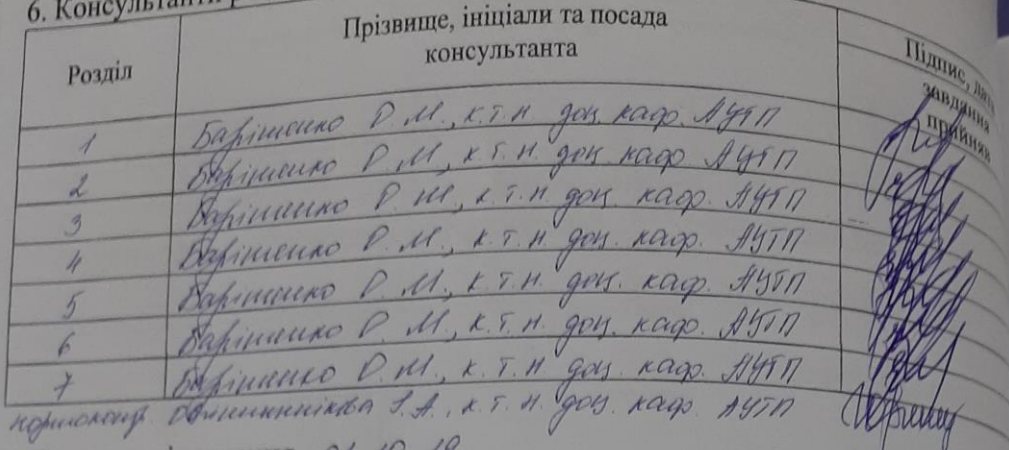 6. Консультанти
Розділ Прізвище, ініціали та посада консультанта Підпис, дата
завдання прийняв
1 Барішенко О. М., к.т.н. доц. каф. АУТП
2 Барішенко О. М., к.т.н. доц. каф. АУТП
3 Барішенко О. М., к.т.н. доц. каф. АУТП
4 Барішенко О. М., к.т.н. доц. каф. АУТП
5 Барішенко О. М., к.т.н. доц. каф. АУТП
6 Барішенко О. М., к.т.н. доц. каф. АУТП
7 Барішенко О. М., к.т.н. доц. каф. АУТП
нормоконтр. І.А., к.т.н. доц. каф. АУТП